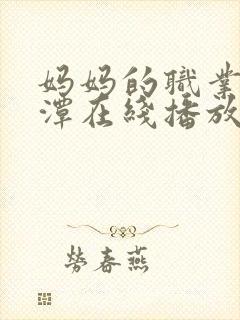 妈妈的職業
潭在綫播放
勞春燕